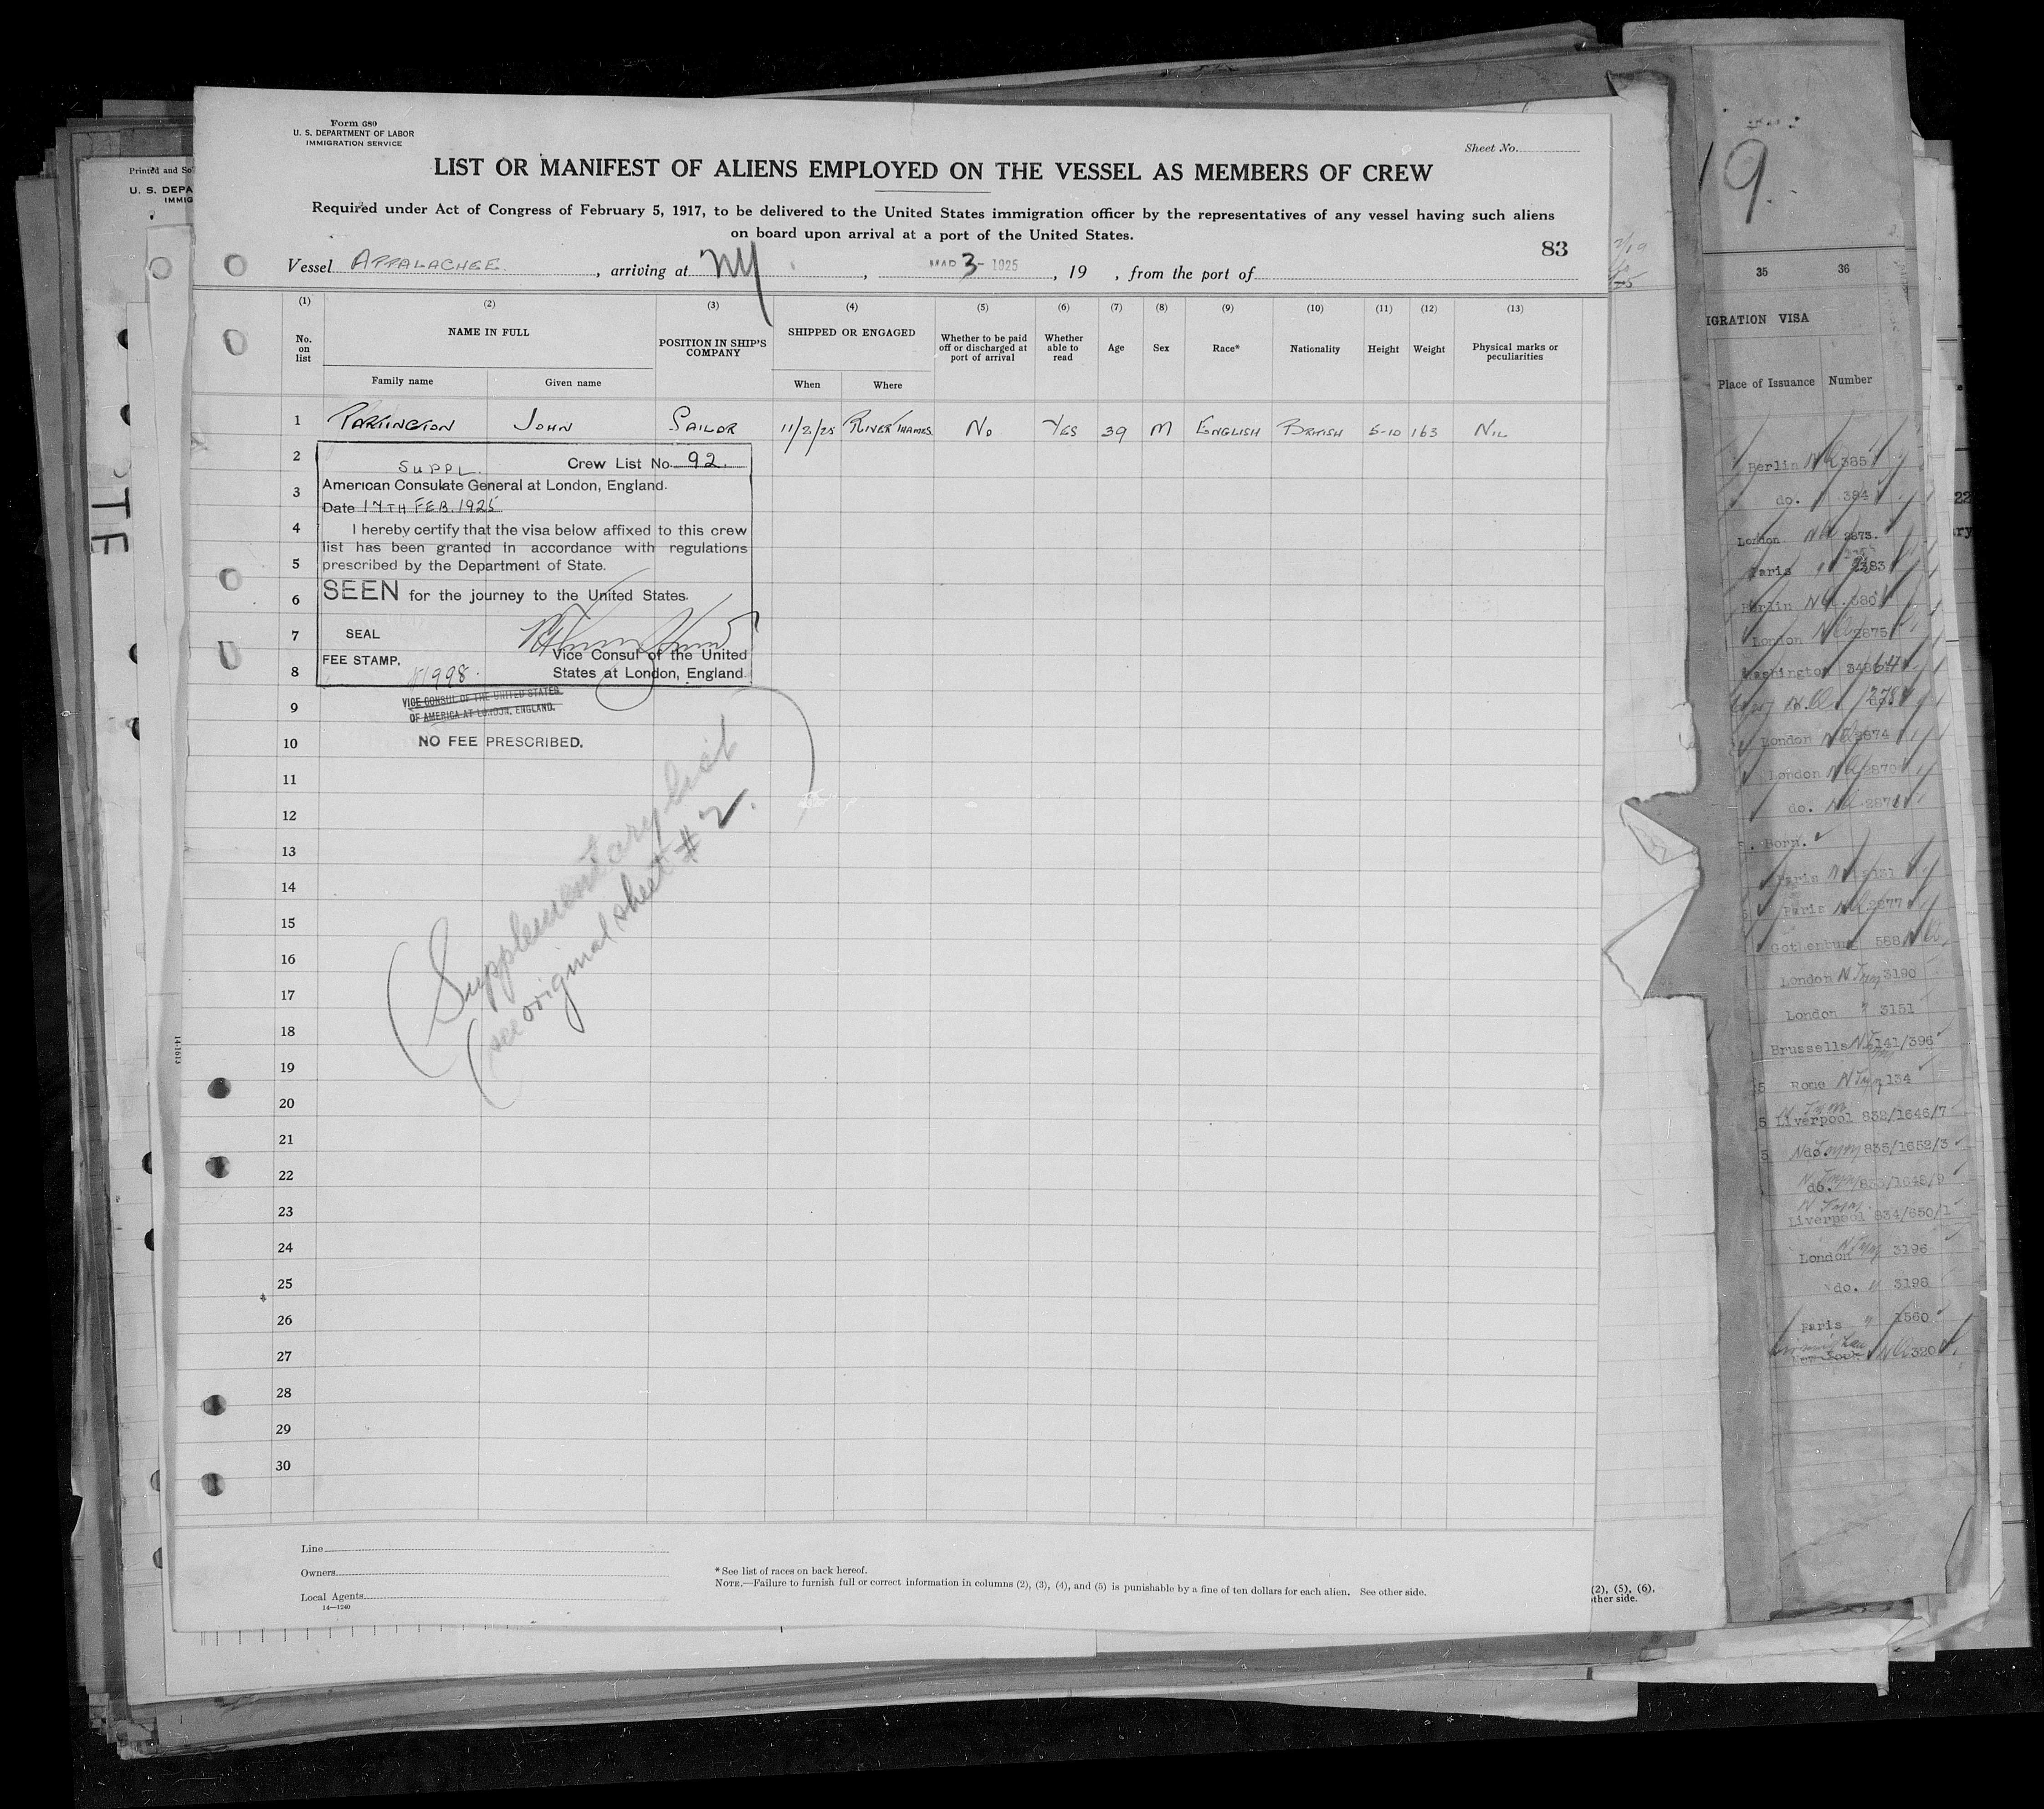 Form 680
U. S. DEPARTMENT OF LABOR
IMMIGRATION SERVICE
Sheet No.
LIST OR MANIFEST OF ALIENS EMPLOYED ON THE VESSEL AS MEMBERS OF CREW
Required under Act of Congress of February 5, 1917, to be delivered to the United States immigration officer by the representatives of any vessel having such aliens
on board upon arrival at a port of the United States.
83
Vessel APPALACHEE, arriving at NY, MAR 3- 1925, 19 , from the port of
(1) (2) (3) (4) (5) (6) (7) (8) (9) (10) (11) (12) (13)
No. on list NAME IN FULL POSITION IN SHIP'S COMPANY SHIPPED OR ENGAGED Whether to be paid off or discharged at port of arrival Whether able to read Age Sex Race* Nationality Height Weight Physical marks or peculiarities
Family name Given name When Where
1 PARTINGTON JOHN SAILOR 11/2/25 RIVER THAMES No YES 39 M ENGLISH BRITISH 5-10 163 NIL
2
SUPPL. Crew List No. 92.
3
American Consulate General at London, England.
Date 17TH FEB. 1925
4
I hereby certify that the visa below affixed to this crew
list has been granted in accordance with regulations
5
prescribed by the Department of State.
6
SEEN for the journey to the United States.
7
SEAL
Vice Consul of the United
FEE STAMP.
8
1998. States at London, England.
VICE CONSUL OF THE UNITED STATES
OF AMERICA AT LONDON, ENGLAND.
9
10
NO FEE PRESCRIBED.
11
12
13
14
15
16
17
18
19
20
21
22
23
24
25
26
27
28
29
30
(Supplementary list)
(see original sheet # 2.
Line
Owners
Local Agents
14—1240
* See list of races on back hereof.
NOTE.—Failure to furnish full or correct information in columns (2), (3), (4), and (5) is punishable by a fine of ten dollars for each alien. See other side.
(2), (5), (6),
other side.
Printed and So
U. S. DEPA
IMMIG
14-1613
19.
35 36
IGRATION VISA
Place of Issuance Number
Berlin 385
do. 384
London 2873.
Paris 2383
Berlin 380
London 2875
Washington
London 2874
London 2870
do. 2871
Born.
Paris
Paris 2877
Gothenburg 588
London 3190
London " 3151
Brussells 141/396
Rome 134
Liverpool 832/1646/7
do. 835/1652/3
do. 833/1648/9
Liverpool 834/650/1
London 3196
do. " 3198
Paris " 1560
320